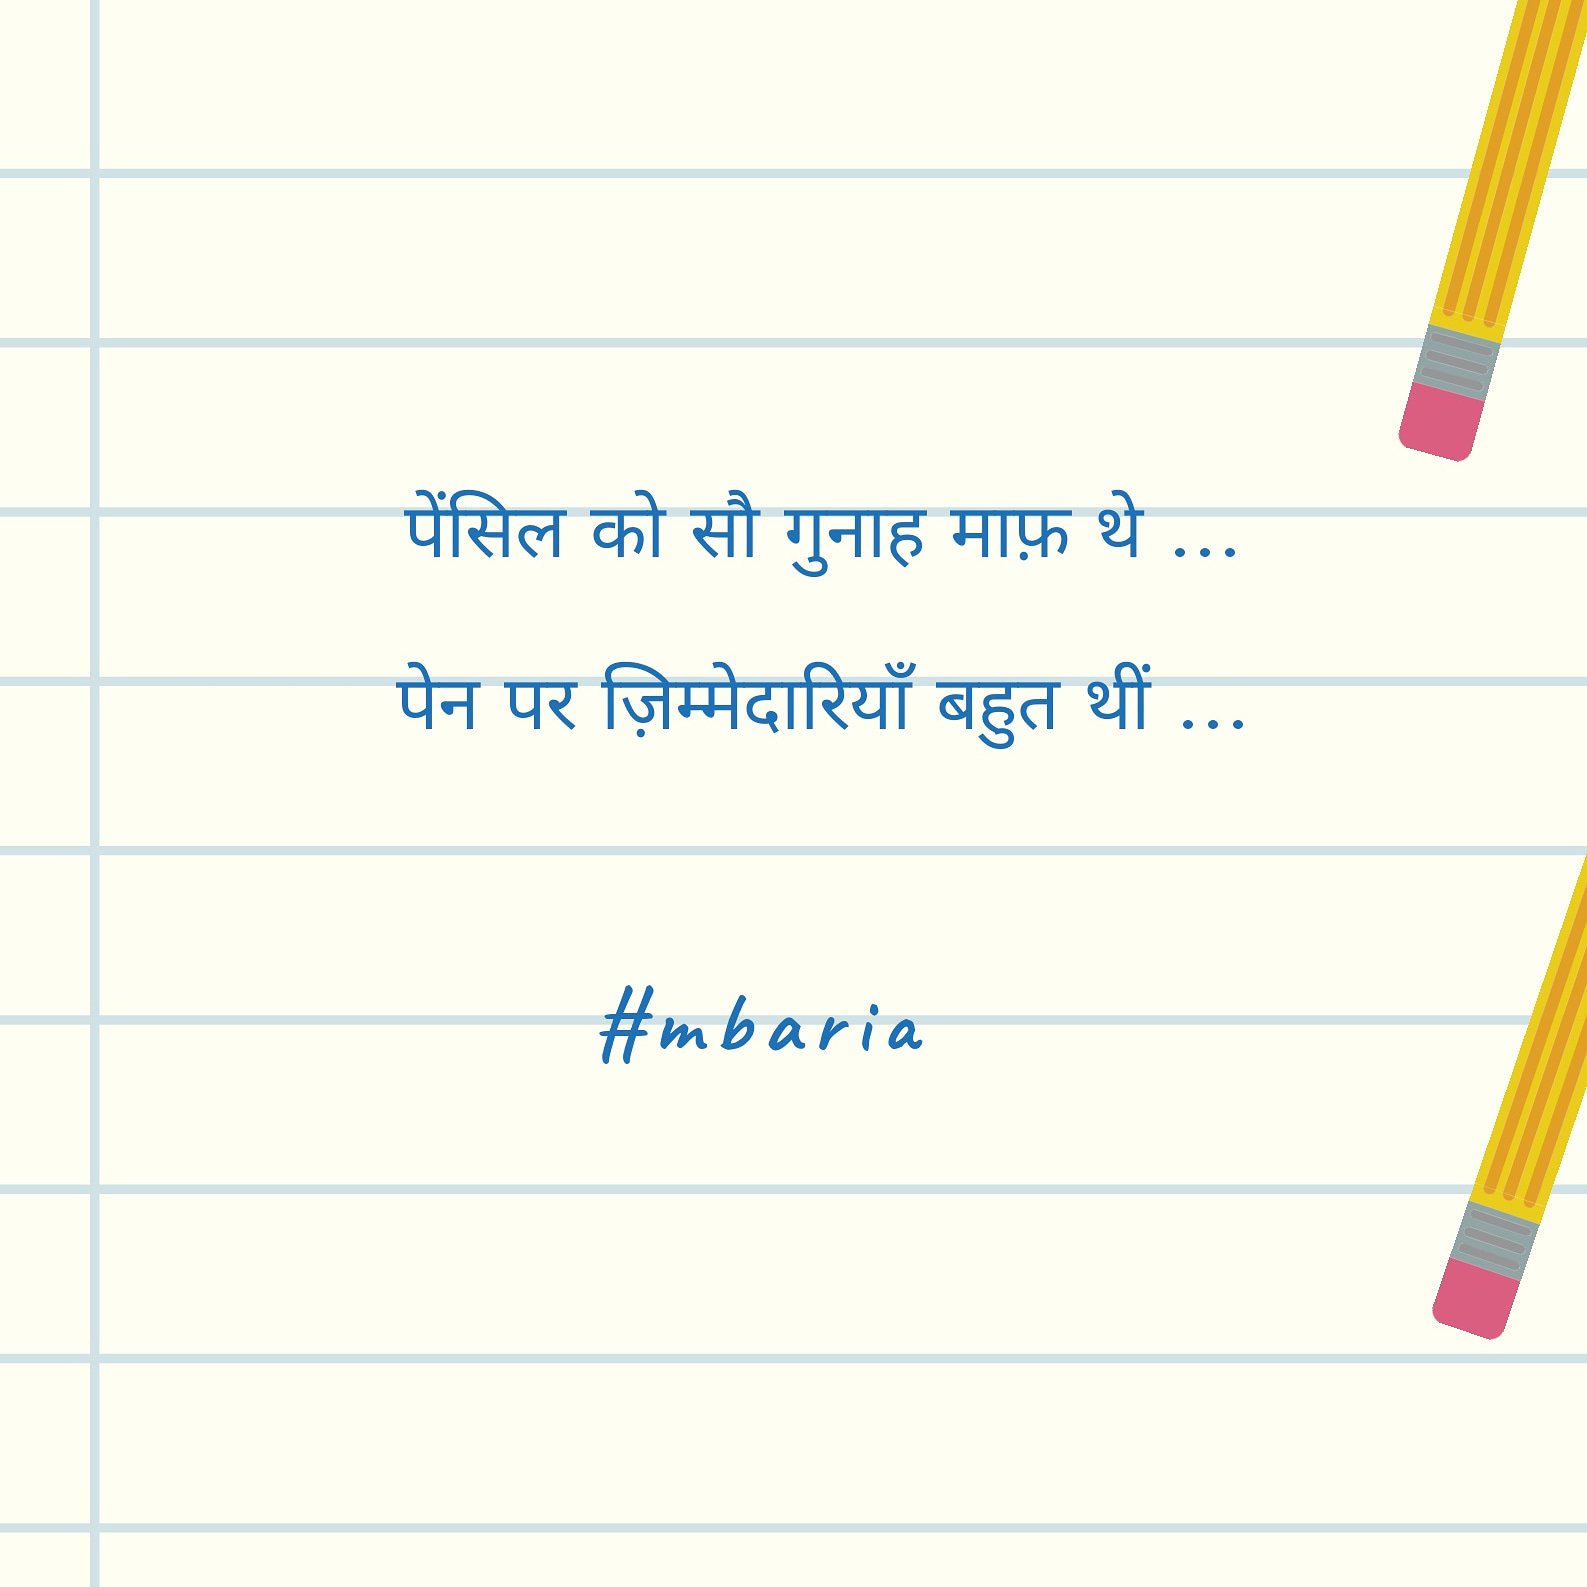 पेंसिल को सौ गुनाह माफ़ थे ...
पेन पर ज़िम्मेदारियाँ बहुत थीं ...
#mbaria